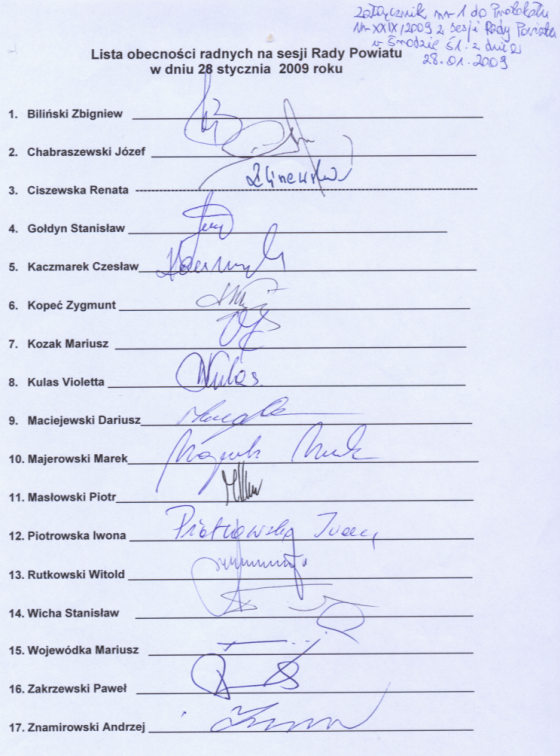 Załącznik nr 1 do Protokołu
Nr XXIX/2009 z sesji Rady Powiatu
w Środzie Śl. z dnia
28.01.2009
Lista obecności radnych na sesji Rady Powiatu
w dniu 28 stycznia 2009 roku
1. Biliński Zbigniew
2. Chabraszewski Józef
3. Ciszewska Renata
4. Gołdyn Stanisław
5. Kaczmarek Czesław
6. Kopeć Zygmunt
7. Kozak Mariusz
8. Kulas Violetta Kulas
9. Maciejewski Dariusz
10. Majerowski Marek
11. Masłowski Piotr
12. Piotrowska Iwona Piotrowska Iwona
13. Rutkowski Witold
14. Wicha Stanisław
15. Wojewódka Mariusz
16. Zakrzewski Paweł
17. Znamirowski Andrzej